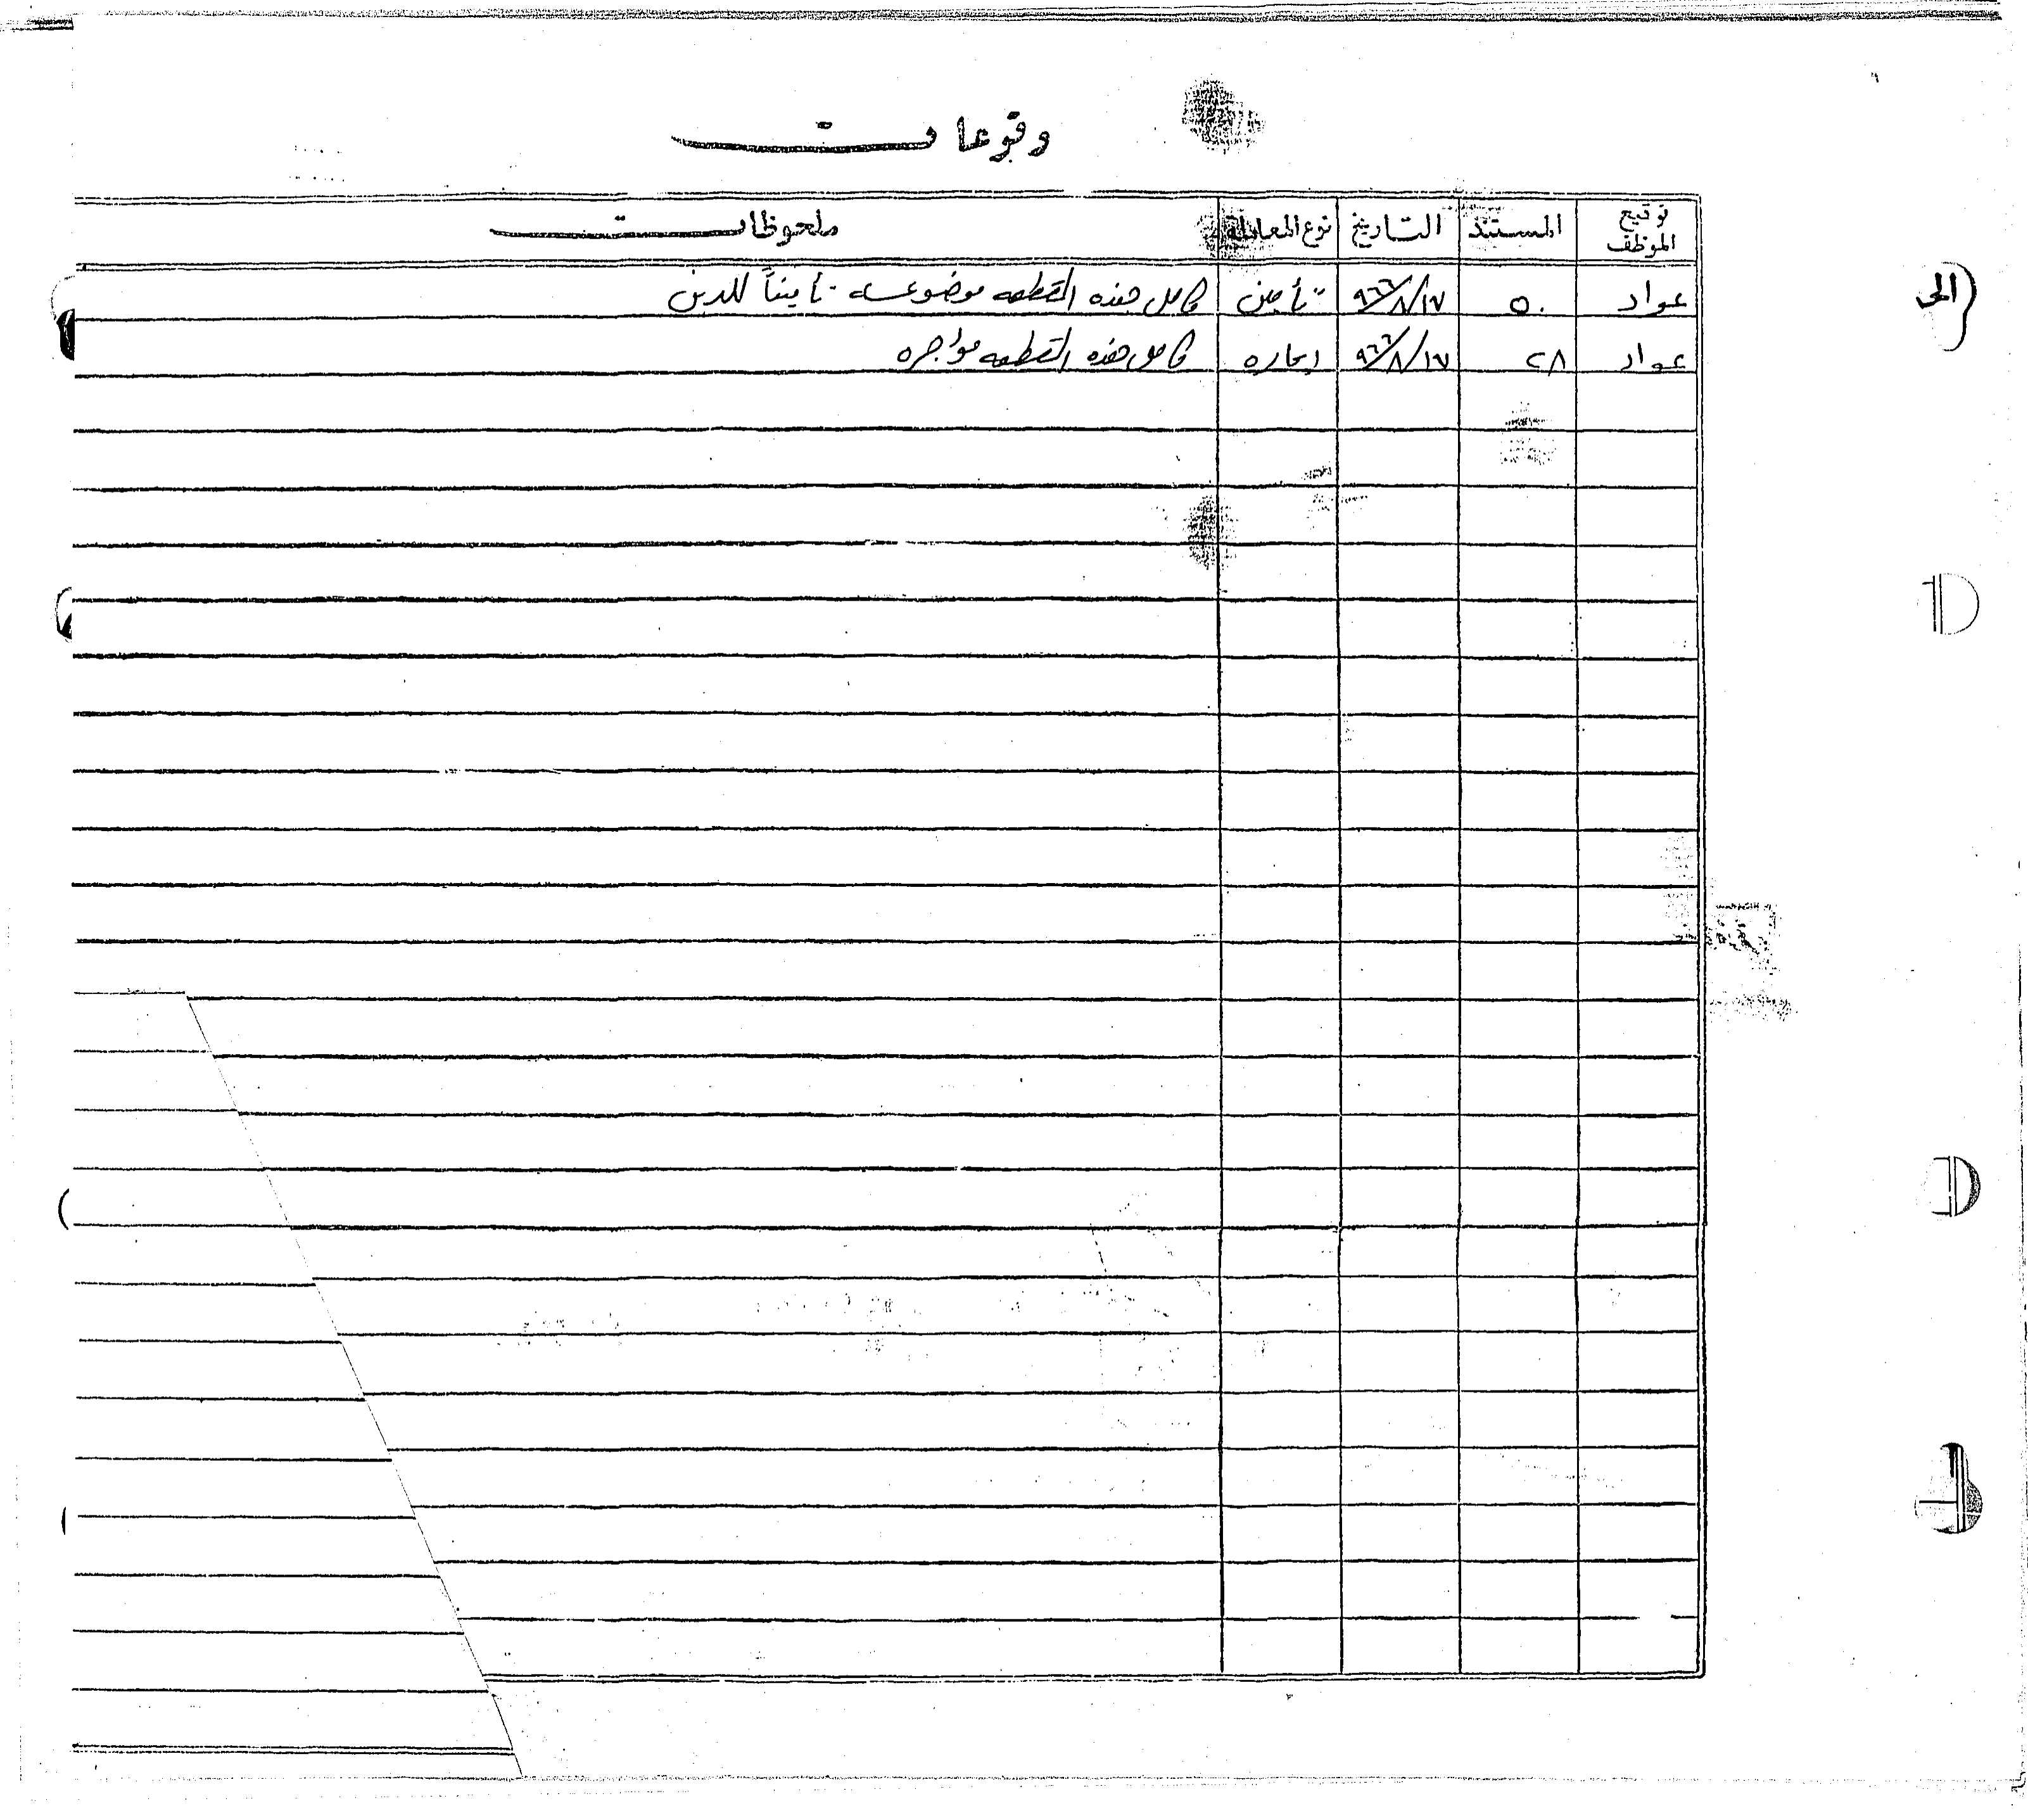 وقوعات
توقيع الموظف المستند التاريخ نوع المعاملة ملحوظات
عواد ٥٠ ٩٦٦/٨/١٧ تأمين كامل هذه القطعه موضوعه تأميناً للدين
عواد ٢٨ ٩٦٦/٨/١٧ اجاره كامل هذه القطعه مؤاجره